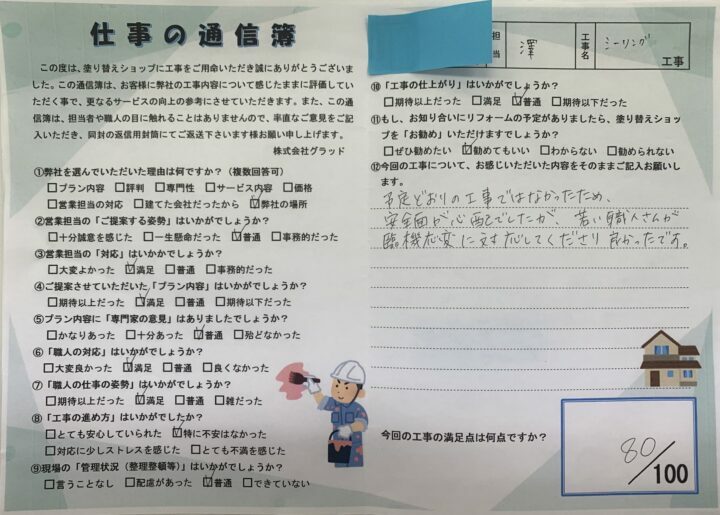 仕事の通信簿
この度は、塗り替えショップに工事をご用命いただき誠にありがとうございま
した。この通信簿は、お客様に弊社の工事内容について感じたままに評価してい
ただく事で、更なるサービスの向上の参考にさせていただきます。また、この通
信簿は、担当者や職人の目に触れることはありませんので、率直なご意見をご記
入いただき、同封の返信用封筒にてご返送下さいます様お願い申し上げます。
株式会社グラッド
①弊社を選んでいただいた理由は何ですか？（複数回答可）
□プラン内容 □評判 □専門性 □サービス内容 □価格
□営業担当の対応 □建てた会社だったから ☑弊社の場所
②営業担当の「ご提案する姿勢」はいかがでしょうか？
□十分誠意を感じた □一生懸命だった ☑普通 □事務的だった
③営業担当の「対応」はいかかでしょうか？
□大変よかった ☑満足 □普通 □事務的だった
④ご提案させていただいた「プラン内容」はいかがでしょうか？
□期待以上だった ☑満足 □普通 □期待以下だった
⑤プラン内容に「専門家の意見」はありましたでしょうか？
□かなりあった □十分あった ☑普通 □殆どなかった
⑥「職人の対応」はいかがでしょうか？
□大変良かった ☑満足 □普通 □良くなかった
⑦「職人の仕事の姿勢」はいかがでしょうか？
□期待以上だった ☑満足 □普通 □雑だった
⑧「工事の進め方」はいかがでしたか？
□とても安心していられた ☑特に不安はなかった
□対応に少しストレスを感じた □とても不満を感じた
⑨現場の「管理状況（整理整頓等）」はいかがでしょうか？
□言うことなし □配慮があった ☑普通 □できていない
担当 澤 工事名 シーリング 工事
⑩「工事の仕上がり」はいかがでしょうか？
□期待以上だった □満足 ☑普通 □期待以下だった
⑪もし、お知り合いにリフォームの予定がありましたら、塗り替えショッ
プを「お勧め」いただけますでしょうか？
□ぜひ勧めたい ☑勧めてもいい □わからない □勧められない
⑫今回の工事について、お感じいただいた内容をそのままご記入お願いし
ます。
予定どおりの工事ではなかったため、
安全面が心配でしたが、若い職人さんが
臨機応変に対応してくださり良かったです。
今回の工事の満足点は何点ですか？
80/100